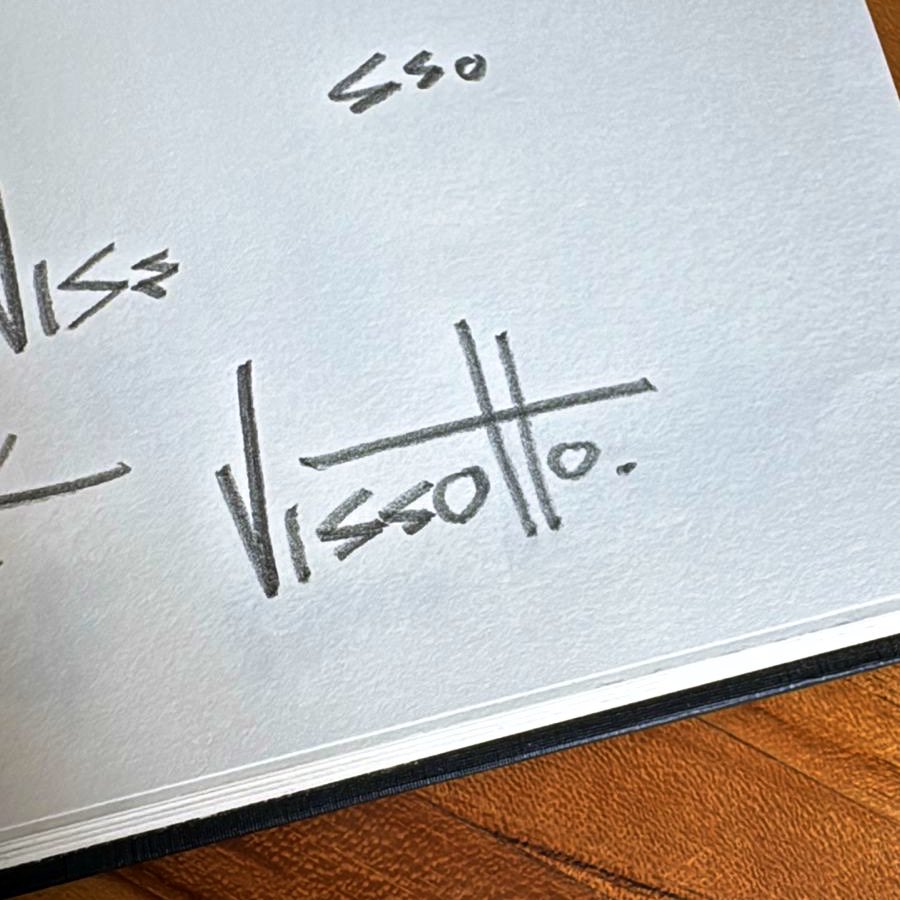 sso
Viss
Vissotto.